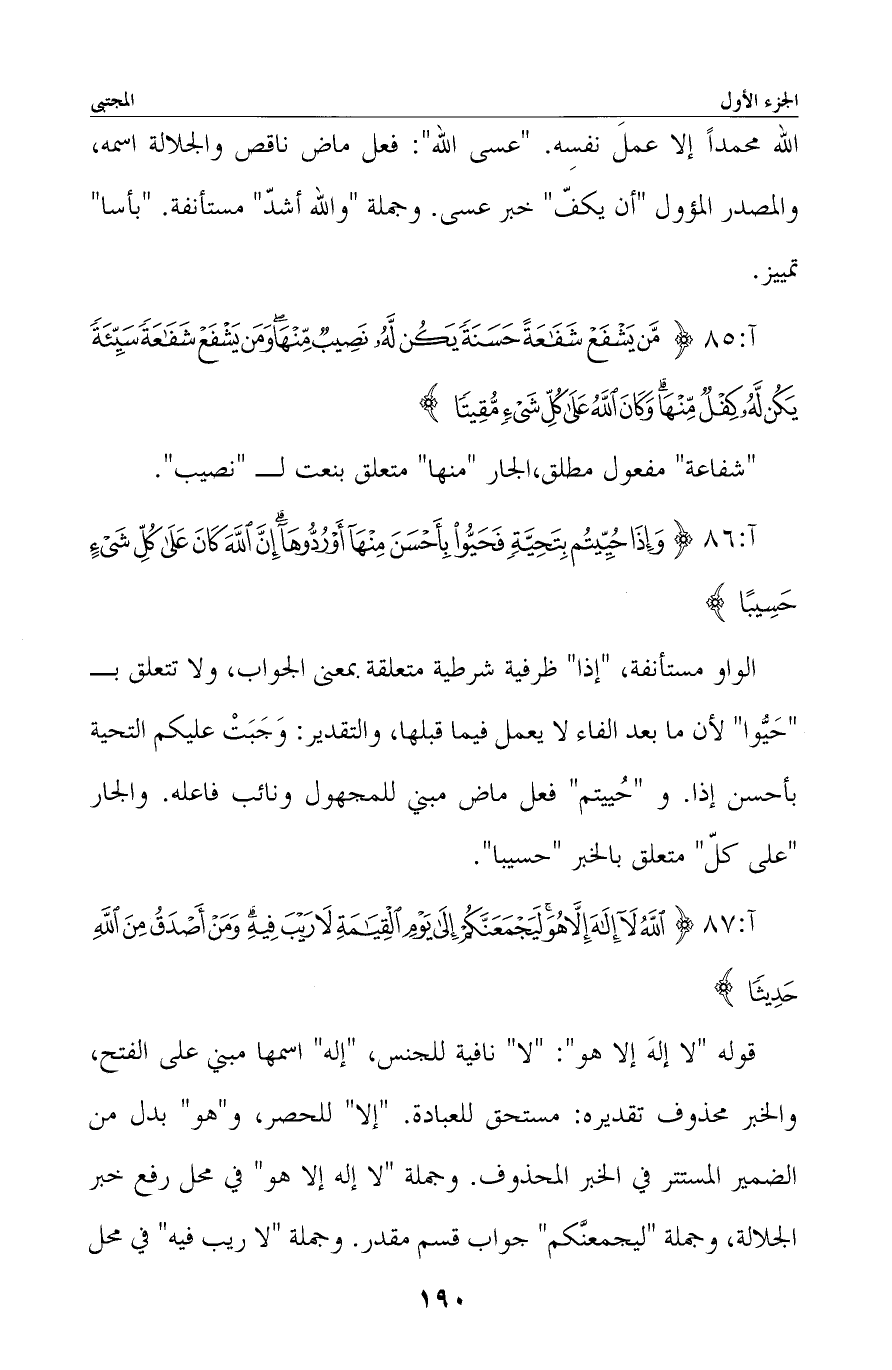 الجزء الأول المجتبى
الله محمداً إلا عملَ نفسِه. "عسى الله": فعل ماض ناقص والجلالة اسمه،
والمصدر المؤول "أن يكفّ" خبر عسى. وجملة "والله أشدّ" مستأنفة. "بأسا"
تمييز.
آ:٨٥ ﴿ مَّن يَشْفَعْ شَفَـٰعَةً حَسَنَةً يَكُن لَّهُۥ نَصِيبٌ مِّنْهَا ۖ وَمَن يَشْفَعْ شَفَـٰعَةً سَيِّئَةً
يَكُن لَّهُۥ كِفْلٌ مِّنْهَا ۗ وَكَانَ ٱللَّهُ عَلَىٰ كُلِّ شَىْءٍ مُّقِيتًا ﴾
"شفاعة" مفعول مطلق،الجار "منها" متعلق بنعت لـــ "نصيب".
آ:٨٦ ﴿ وَإِذَا حُيِّيتُم بِتَحِيَّةٍ فَحَيُّوا۟ بِأَحْسَنَ مِنْهَآ أَوْ رُدُّوهَآ ۗ إِنَّ ٱللَّهَ كَانَ عَلَىٰ كُلِّ شَىْءٍ
حَسِيبًا ﴾
الواو مستأنفة، "إذا" ظرفية شرطية متعلقة بمعنى الجواب، ولا تتعلق بـــ
"حَيُّوا" لأن ما بعد الفاء لا يعمل فيما قبلها، والتقدير: وَجَبَتْ عليكم التحية
بأحسن إذا. و "حُييتم" فعل ماض مبني للمجهول ونائب فاعله. والجار
"على كلّ" متعلق بالخبر "حسيبا".
آ:٨٧ ﴿ ٱللَّهُ لَآ إِلَـٰهَ إِلَّا هُوَ ۚ لَيَجْمَعَنَّكُمْ إِلَىٰ يَوْمِ ٱلْقِيَـٰمَةِ لَا رَيْبَ فِيهِ ۗ وَمَنْ أَصْدَقُ مِنَ ٱللَّهِ
حَدِيثًا ﴾
قوله "لا إلهَ إلا هو": "لا" نافية للجنس، "إله" اسمها مبني على الفتح،
والخبر محذوف تقديره: مستحق للعبادة. "إلا" للحصر، و"هو" بدل من
الضمير المستتر في الخبر المحذوف. وجملة "لا إله إلا هو" في محل رفع خبر
الجلالة، وجملة "ليجمعنَّكم" جواب قسم مقدر. وجملة "لا ريب فيه" في محل
١٩٠